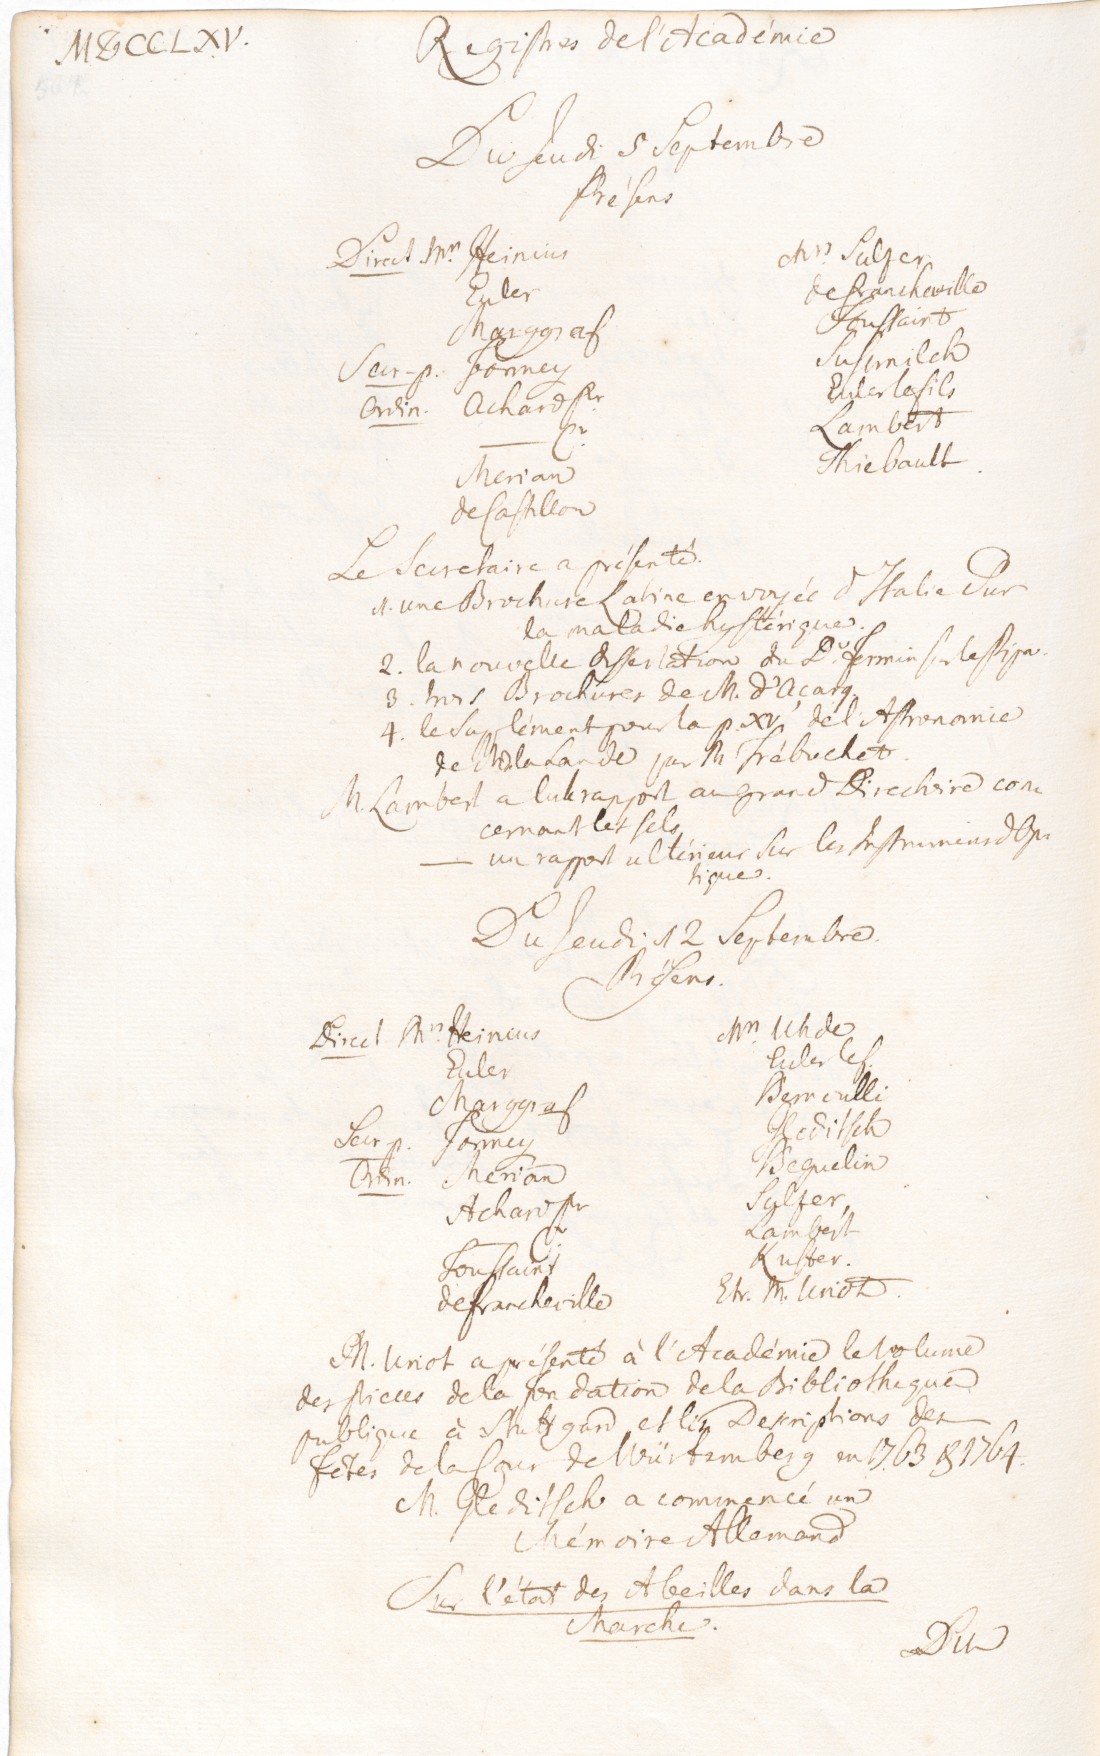 MDCCLXV.
Registres de l'Académie
Du Jeudi 5 Septembre
Présens
Direct. Mrs. Heinius
Euler
Marggraf
Secr. p. Formey
Ordin. Achard Pr.
—— Cr.
Merian
de Castillon
Mrs. Sulzer
de Francheville
Toussaint
Susmilch
Euler le fils
Lambert
Thiebault.
Le Secretaire a présenté.
1. une Brochure Latine envoyée d'Italie Sur
la maladie hystérique.
2. la nouvelle dissertation du Dr. Fermin sur le Pipa.
3. trois Brochures de M. d'Açarq.
4. le Supplément pour la p. XVI de l'Astronomie
de M. de la Lande par M. Trébuchet.
M. Lambert a lu le rapport au grand Directoire con-
cernant les sels,
—— un rapport ultérieur sur les Instrumens d'Op-
tique.
Du Jeudi 12 Septembre.
Présens.
Direct. Mrs. Heinius
Euler
Marggraf
Secr. p. Formey
Ordin. Merian
Achard Pr
—— Cr.
Toussaint
de Francheville
Mrs. Uhde
Euler le f.
Bernoulli
Gleditsch
Beguelin
Sulzer,
Lambert
Kuster.
Etr. M. Uriot.
M. Uriot a présenté à l'Académie le Volume
des pieces de la fondation de la Bibliotheque
publique à Stuttgard, et les Descriptions des
fêtes de la Cour de Würtemberg en 1763 & 1764.
M. Gleditsch a commencé un
Mémoire Allemand
Sur l'état des Abeilles dans la
Marche.
Du